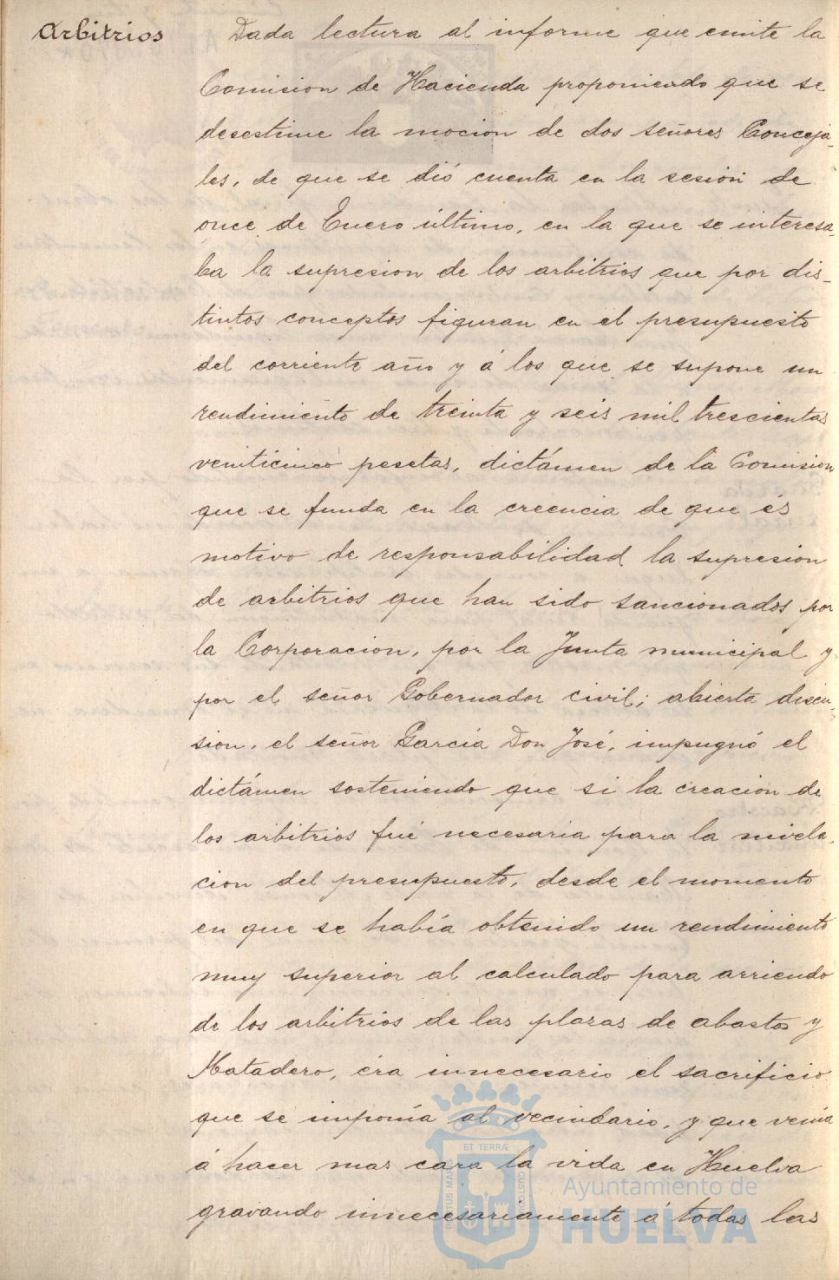 Arbitrios
Dada lectura al informe que emite la
Comision de Hacienda proponiendo que se
desestime la mocion de dos señores Conceja-
les, de que se dió cuenta en la sesión de
once de Enero último, en la que se interesa-
ba la supresion de los arbitrios que por dis-
tintos conceptos figuran en el presupuesto
del corriente año y á los que se supone un
rendimiento de treinta y seis mil trescientas
veinticinco pesetas, dictámen de la Comision
que se funda en la creencia de que és
motivo de responsabilidad la supresion
de arbitrios que han sido sancionados por
la Corporacion, por la Junta municipal y
por el señor Gobernador civil; abierta discu-
sion, el señor García Don José, impugnó el
dictámen sosteniendo que si la creacion de
los arbitrios fué necesaria para la nivela-
cion del presupuesto, desde el momento
en que se había obtenido un rendimiento
muy superior al calculado para arriendo
de los arbitrios de las plazas de abastos y
Matadero, éra innecesario el sacrificio
que se imponía al vecindario, y que venía
á hacer mas cara la vida en Huelva
gravando innecesariamente á todas las
ET TERRÆ
Ayuntamiento de
HUELVA